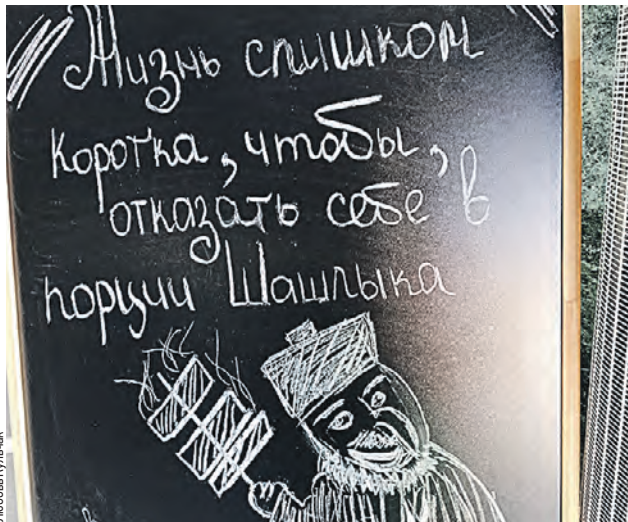 Жизнь слишком
коротка, чтобы,
отказать себе в
порции Шашлыка